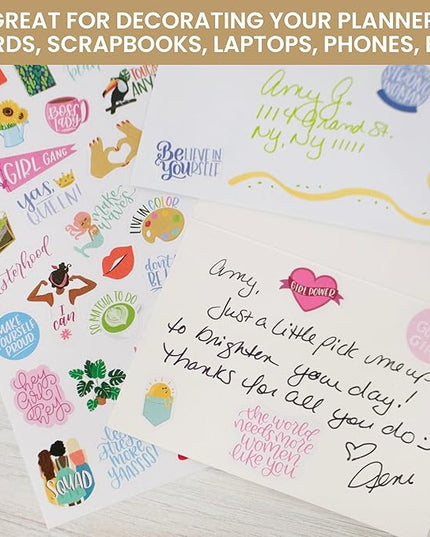 GREAT FOR DECORATING YOUR PLANNER
RDS, SCRAPBOOKS, LAPTOPS, PHONES, E
BOSS
lady
TOUCAN
ANY
GIRL GANG
yas,
QUEEN!
BeLIEVE IN
YOURSELF
Amy J.
1114 Grand St.
Ny, Ny 11111
make
waves
LIVE IN COLOR
sisterhood
I
can
don't
BE
SO MATCHA TO DO
MAKE
YOURSELF
PROUD
hey
girl
hey!
SQUAD
yaasss!
Amy,
GIRL POWER
Just a little pick me up
to brighten your day!
Thanks for all you do :)
GO
GIRL
the world
needs more
women
like you
Jeni